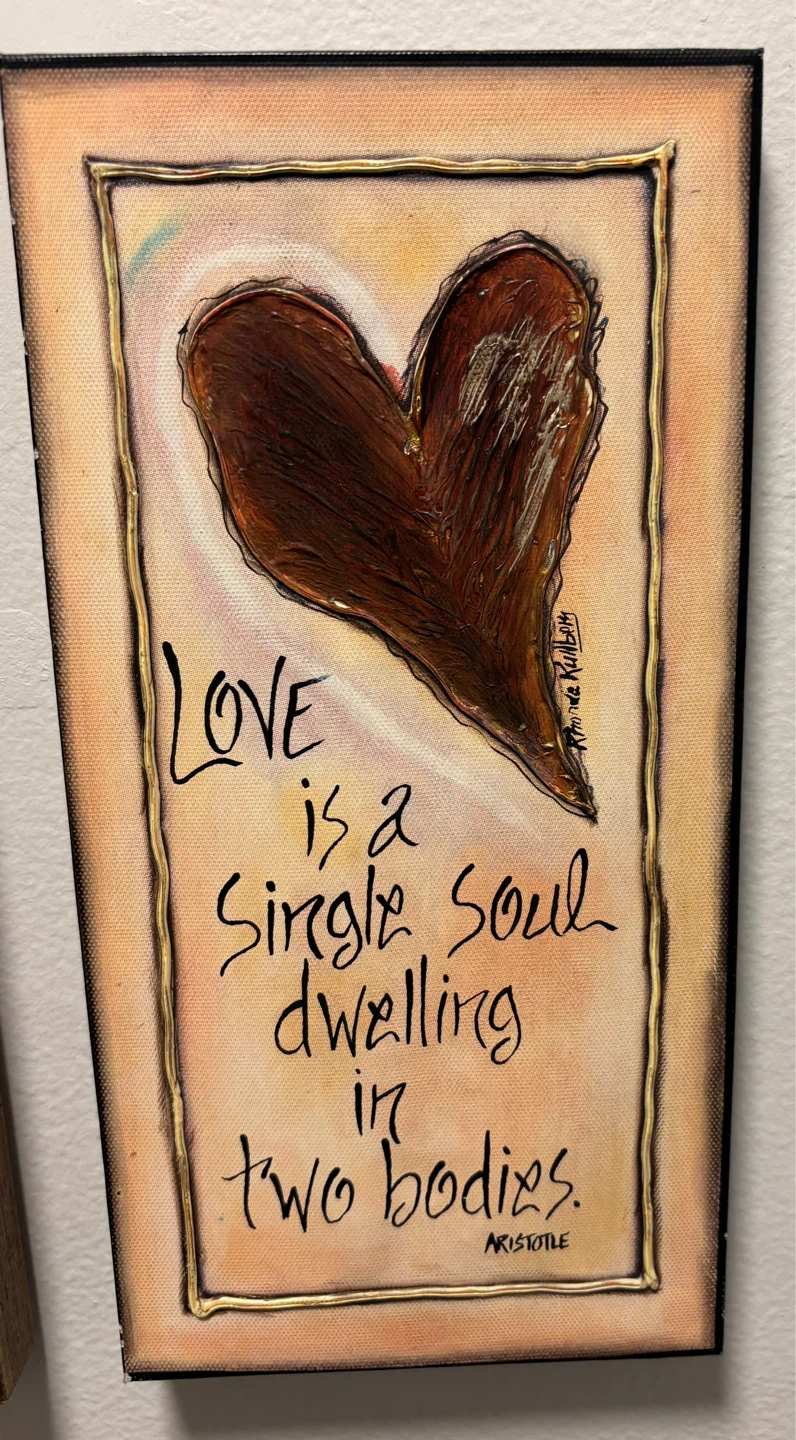 LOVE
is a
single soul
dwelling
in
two bodies.
ARISTOTLE
Rhonda